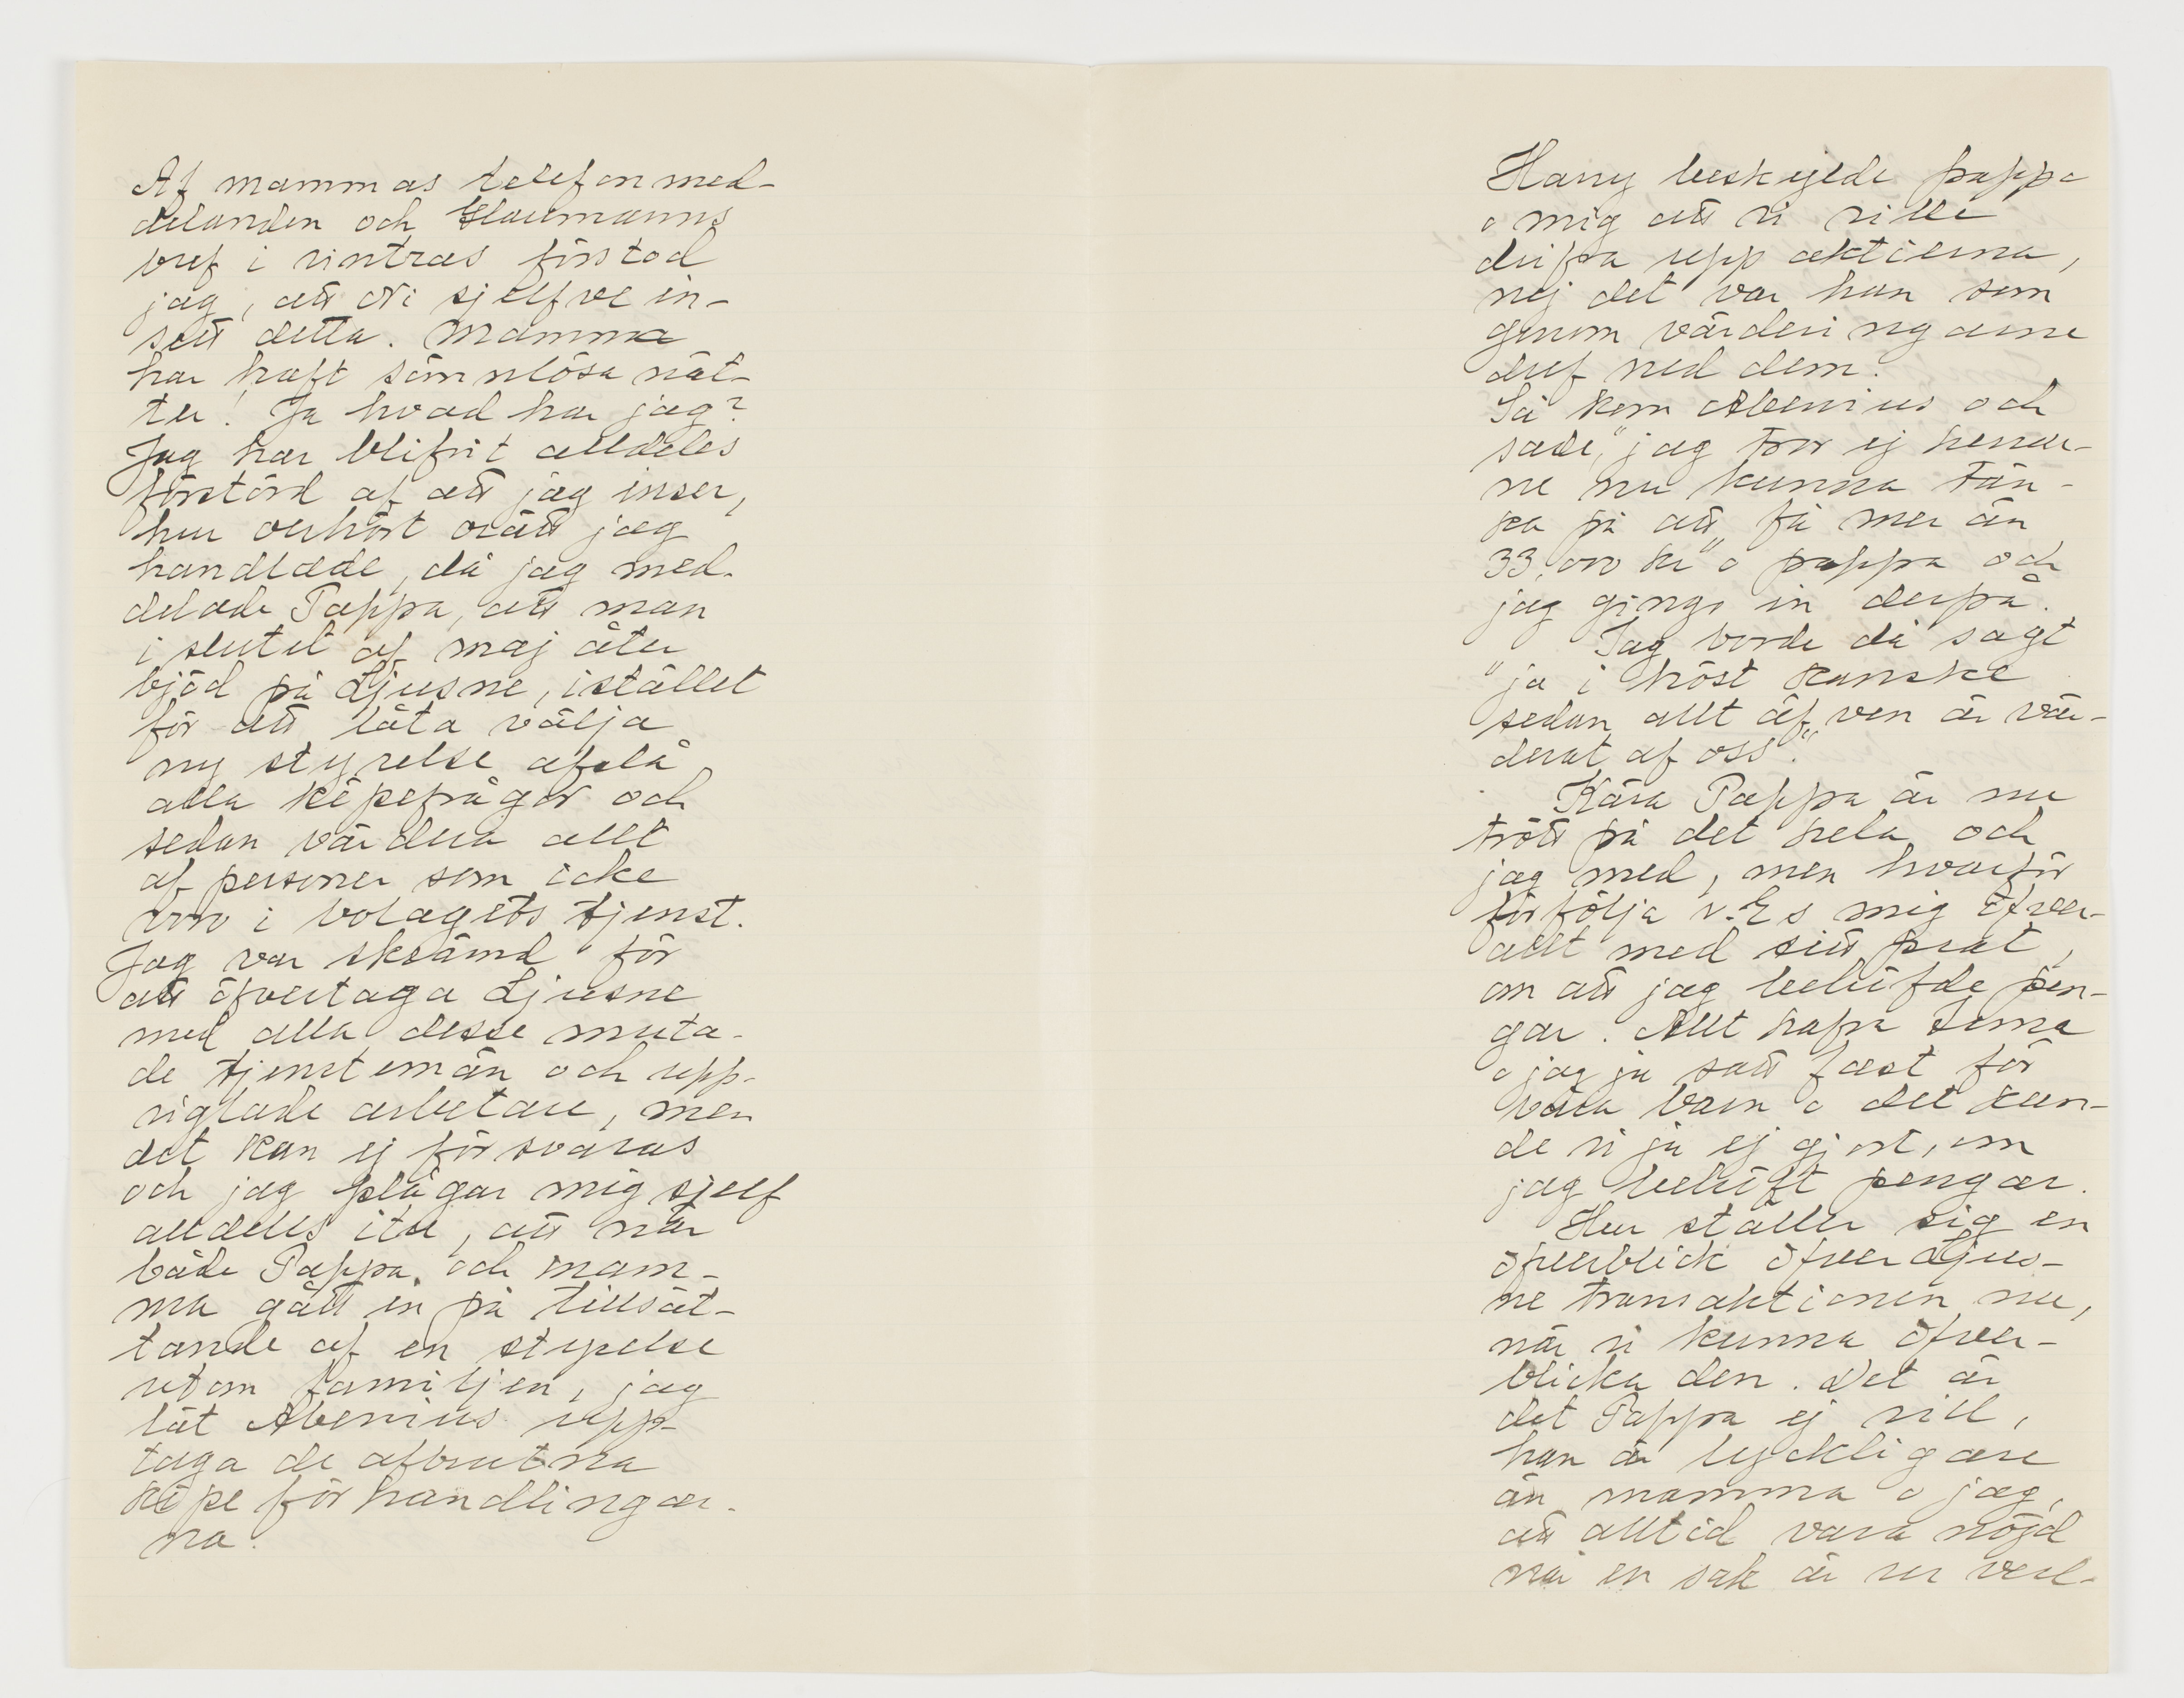 Af mammas telefonmed-
delanden och Haumanns
bref i vintras förstod
jag, att Ni sjelfve in-
sett detta. Mamma
har haft sömnlösa nät-
ter! Ja hvad har jag?
Jag har blifvit alldeles
förstörd af att jag inser,
hur oerhört orätt jag
handlade, då jag med-
delade Pappa, att man
i slutet af maj åter
bjöd på Ljusne, istället
för att låta välja
ny styrelse afslå
alla köpefrågor och
sedan värdera allt
af personer som icke
voro i bolagets tjenst.
Jag var skrämd för
att öfvertaga Ljusne
med alla desse muta-
de tjenstemän och upp-
viglade arbetare, men
det kan ej försvaras
och jag plågar mig sjelf
alldeles itu, att när
både Pappa och mam-
ma gått in på tillsät-
tande af en styrelse
utom familjen, jag
lät Abenius upp-
taga de afbrutna
köpeförhandlingar-
na.
Harry beskylde pappa
o mig att vi ville
drifva upp aktierna,
nej det var han som
genom värderingarne
dref ned dem.
Så kom Abenius och
sade, "jag tror ej herrar-
ne nu kunna tän-
ka på att få mer än
33,000 kr" o pappa och
jag gingo in derpå.
Jag borde då sagt
"ja i höst kanske
sedan allt äfven är vär-
derat af oss".
Kära Pappa är nu
trött på det hela och
jag med, men hvarför
förfölja v.Es mig öfver-
allt med sitt prat,
om att jag behöfde pen-
gar. Allt hafva Irma
o jag ju satt fast för
våra barn o det kun-
de vi ju ej gjort, om
jag behöft pengar.
Hur ställer sig en
öfverblick öfver Ljus-
ne transaktionen nu,
när vi kunna öfver-
blicka den. Det är
det Pappa ej vill,
han är lyckligare
än mamma o jag,
att alltid vara nöjd
när en sak är ur verl-